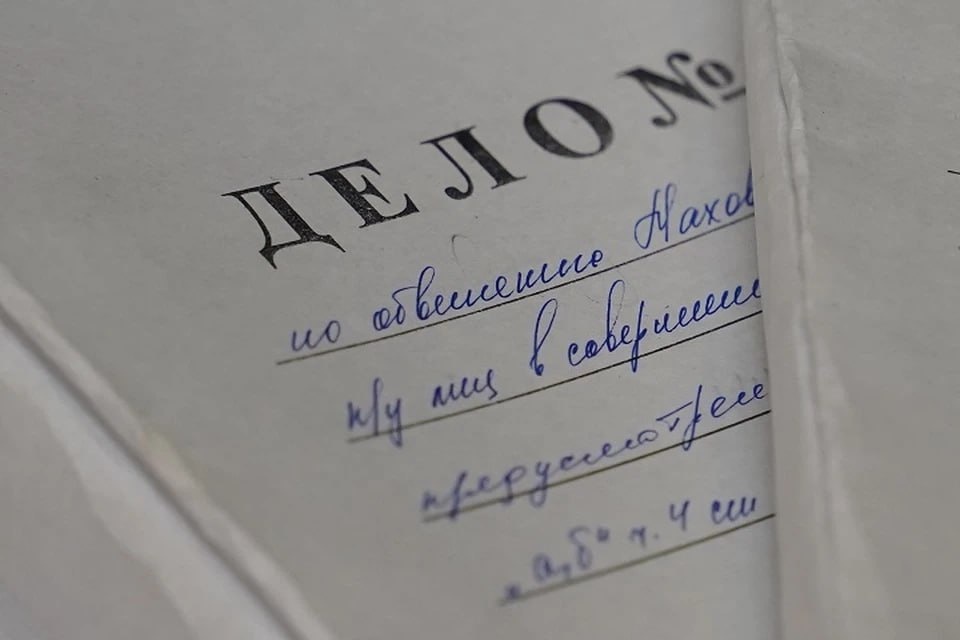 ДЕЛО №
по обвинению Махов
п/у лиц в совершении
предусмотрен
"а,б" ч. 4 ст